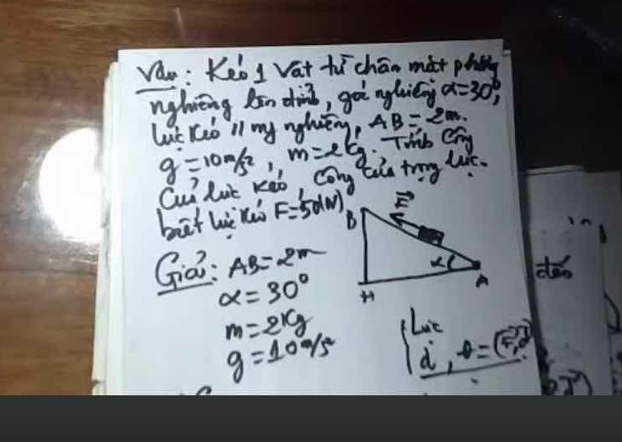 Vấn: Kéo 1 Vật từ chân mặt phẳng
nghiêng lên đỉnh, góc nghiêng α=30°,
lực kéo // mp nghiêng, AB = 2m.
g=10m/s², m=2kg. Tính Công
của lực kéo, công của trọng lực.
biết lực kéo F=50(N)
F⃗
B
Giải: AB=2m
α
A
H
α=30°
m=2kg
g=10m/s²
Lực
d, θ=(F⃗,d⃗)
đến